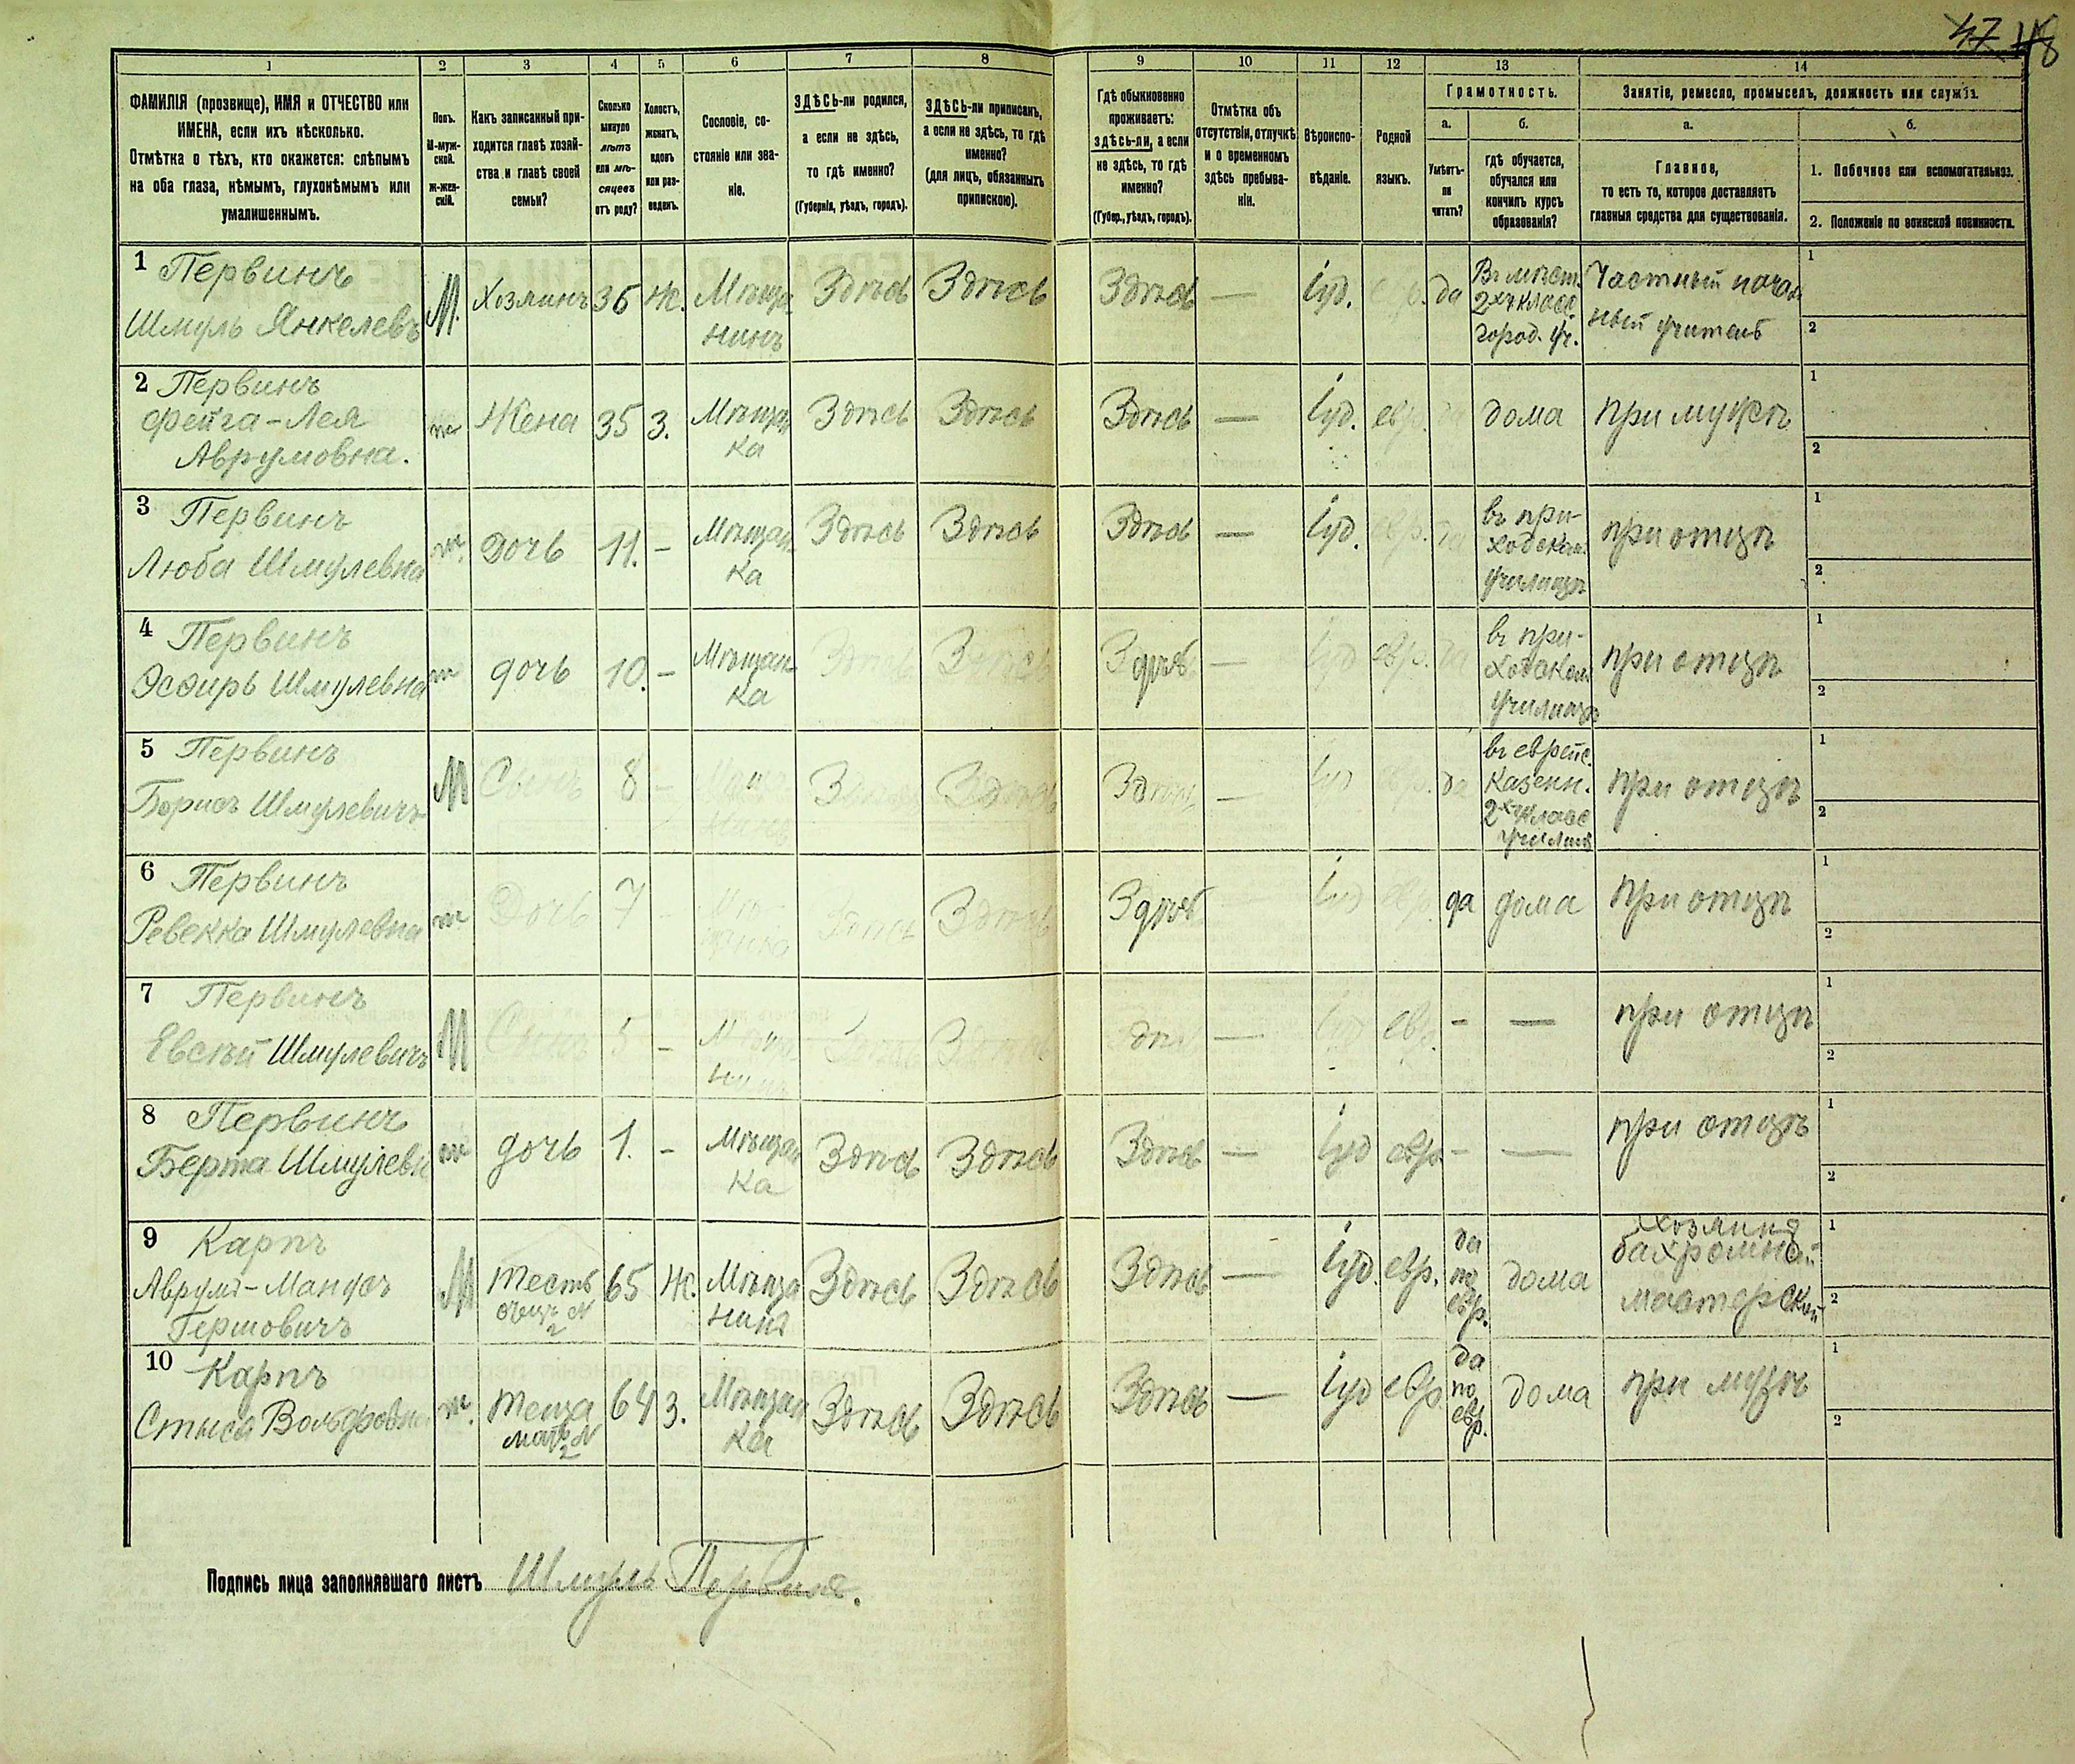 47 48
1 2 3 4 5 6 7 8 9 10 11 12 13 14
ФАМИЛІЯ (прозвище), ИМЯ и ОТЧЕСТВО или
ИМЕНА, если ихъ нѣсколько.
Отмѣтка о тѣхъ, кто окажется: слѣпымъ
на оба глаза, нѣмымъ, глухонѣмымъ или
умалишеннымъ.
Полъ.
М-муж-
ской.
ж-жен-
скій.
Какъ записанный при-
ходится главѣ хозяй-
ства и главѣ своей
семьи?
Сколько
минуло
лѣтъ
или мѣ-
сяцевъ
отъ роду?
Холостъ,
женатъ,
вдовъ
или раз-
веденъ.
Сословіе, со-
стояніе или зва-
ніе.
ЗДѢСЬ-ли родился,
а если не здѣсь,
то гдѣ именно?
(Губернія, уѣздъ, городъ).
ЗДѢСЬ-ли приписанъ,
а если не здѣсь, то гдѣ
именно?
(для лицъ, обязанныхъ
припискою).
Гдѣ обыкновенно
проживаетъ:
здѣсь-ли, а если
не здѣсь, то гдѣ
именно?
(Губер., уѣздъ, городъ).
Отмѣтка объ
отсутствіи, отлучкѣ
и о временномъ
здѣсь пребыва-
ніи.
Вѣроиспо-
вѣданіе.
Родной
языкъ.
Грамотность.
а.
Умѣетъ-
ли
читать?
б.
гдѣ обучается,
обучался или
кончилъ курсъ
образованія?
Занятіе, ремесло, промыселъ, должность или служба.
а.
Главное,
то есть то, которое доставляетъ
главныя средства для существованія.
б.
1. Побочное или вспомогательное.
2. Положеніе по воинской повинности.
1 Первинъ
Шмуль Янкелевъ
М. Хозяинъ 36 Ж. Мѣща
нинъ
Здѣсь Здѣсь Здѣсь — Іуд. евр. да
Въ мѣст.
2хъ класс.
город. уч.
Частный началь
ный учитель
1
2
2 Первинъ
Фейга-Лея
Аврумовна.
ж Жена 35 З. Мѣщан
ка
Здѣсь Здѣсь Здѣсь — Іуд. евр. да дома при мужѣ
1
2
3 Первинъ
Люба Шмулевна
ж. дочь 11. — Мѣщан
ка
Здѣсь Здѣсь Здѣсь — Іуд. евр. да
въ при-
ходском.
училищѣ
при отцѣ
1
2
4 Первинъ
Эсѳирь Шмулевна
ж дочь 10. — Мѣщан
ка
Здѣсь Здѣсь Здѣсь — Іуд евр. да
въ при-
ходском
училищѣ
при отцѣ
1
2
5 Первинъ
Борисъ Шмулевичъ
М Сынъ 8 —
Здѣсь Здѣсь Здѣсь — Іуд евр. да
въ еврейс.
казенн.
2хъ класс
училищ
при отцѣ
1
2
6 Первинъ
Ревекка Шмулевна
ж Дочь 7 - Мѣ-
щанка
Здѣсь Здѣсь Здѣсь Іуд евр. да дома при отцѣ
1
2
7 Первинъ
Евсѣй Шмулевичъ
М Сынъ 5 — Мѣща
нинъ
— Іуд евр. - — при отцѣ
1
2
8 Первинъ
Берта Шмулевн
ж дочь 1. - Мѣщан
ка
Здѣсь Здѣсь Здѣсь — Іуд евр - — при отцѣ
1
2
9 Карпъ
Аврумъ-
Гершовичъ
М тесть
отецъ N
2
65 Ж. Мѣща
нинъ
Здѣсь Здѣсь Здѣсь — Іуд. евр.
да
по
евр.
дома
Хозяинъ
бахромной
мастерской
1
2
10 Карпъ
Стыся Вольфовна
ж. теща
мать N
2
64 З. Мѣщан
ка
Здѣсь Здѣсь Здѣсь — Іуд евр
да
по
евр.
дома при мужѣ
1
2
Подпись лица заполнявшаго листъ Шмуль Первинъ.